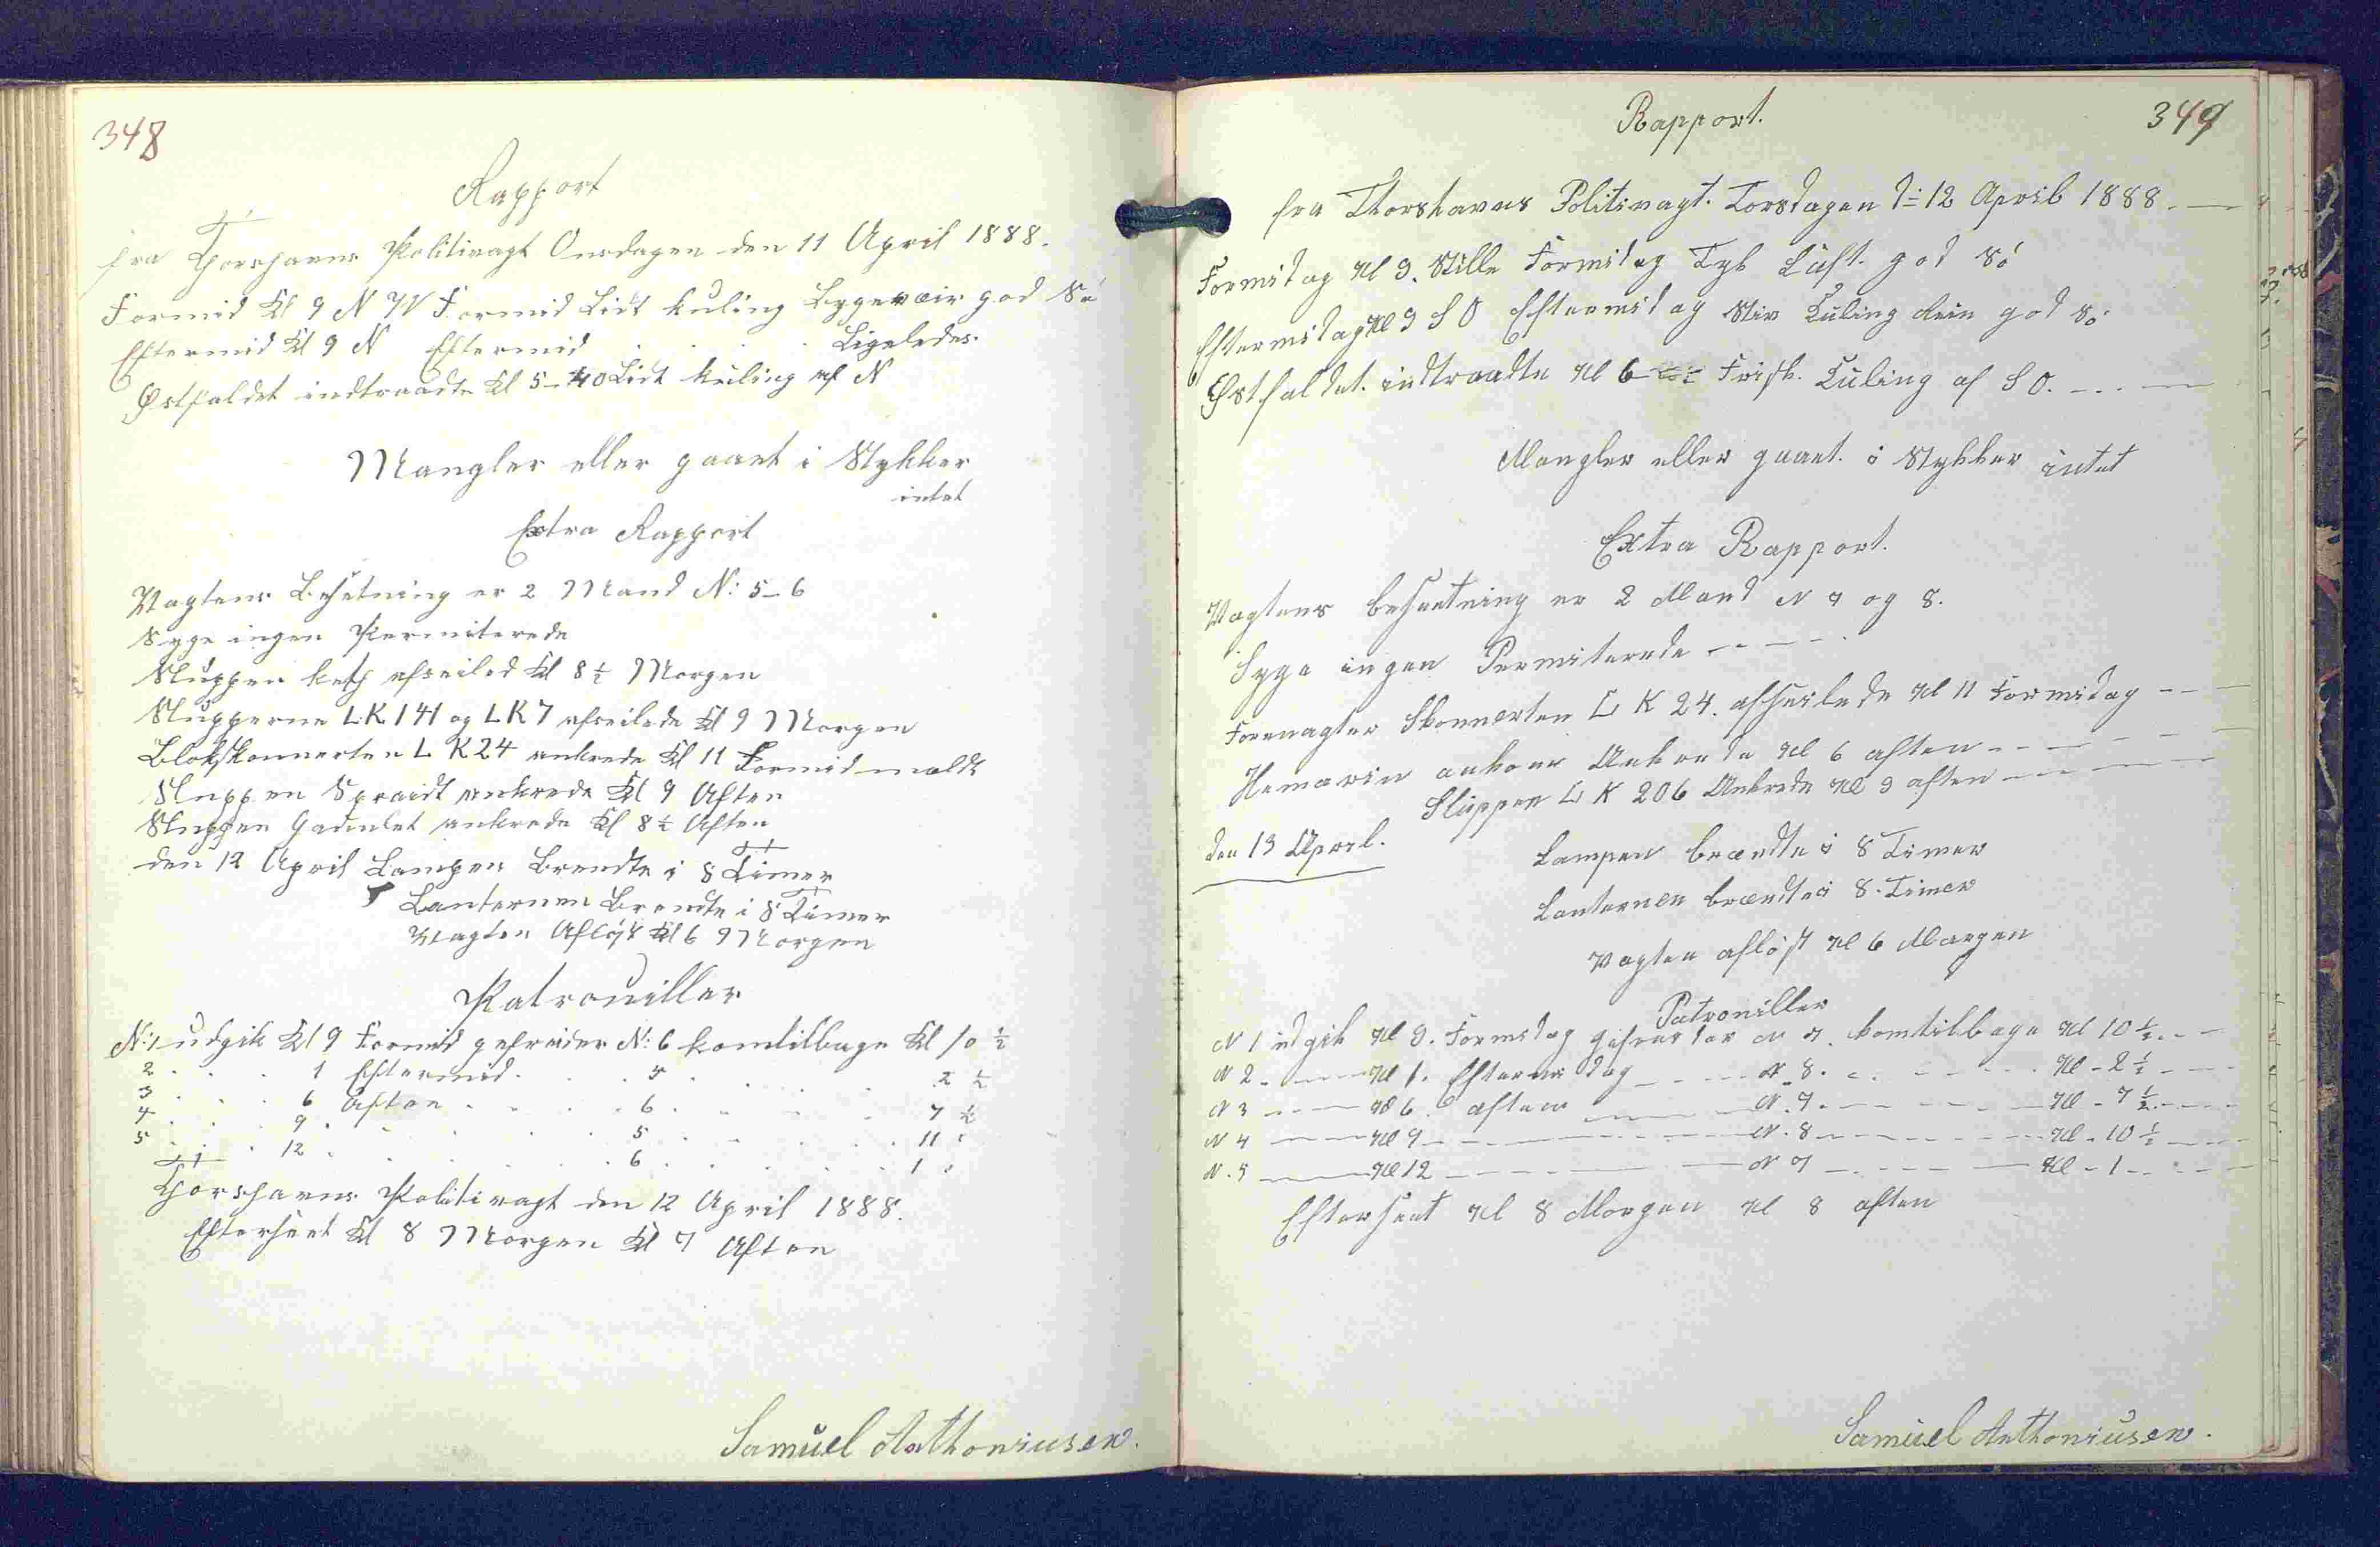 348
Rapport
fra Thorshavns Politivagt Onsdagen den 11 April 1888.
Formid Kl 9 N W Formid Lidt kuling Bygeveir god Sø
Eftermid Kl 9 N Eftermid . . . . Ligeledes.
Østfaldet indtraadte Kl 5-40 Lidt kuling af N
Mangler eller gaaet i Stykker
intet
Extra Rapport
Vagtens Besetning er 2 Mand N: 5-6
Syge ingen Permiterede
Sluppen afseiled Kl 8 ½ Morgen
Slupperne L.K 141 og L K 7 afseilede Kl 9 Morgen
Skonnerten L K 24 ankrede Kl 11 Formid
Sluppen ankrede Kl 9 Aften
Sluppen ankrede Kl 8 ½ Aften
den 12 April Lampen Brendte i 8 Timer
Lanternen Brendte i 8 Timer
Vagten Afløst Kl 6 Morgen
Patrouiller
N: 1 udgik Kl 9 Formid gefreider N: 6 kom tilbage Kl 10 ½
2 . . . 1 Eftermid . . . 5 . . . . 2 ½
3 . . . 6 Aften . . . 6 . . . . 7 ½
4 . . . 9 . . . . . 5 . . . . 11 .
5 . . . 12 . . . . . 6 . . . . 1 .
Thorshavns Politivagt den 12 April 1888.
Efterseet Kl 8 Morgen Kl 7 Aften
Samuel Anthoniusen.
Rapport.
349
fra Thorshavns Politivagt. Torsdagen d= 12 April 1888.
Formidag Kl 9. Stille Formidag Tyk Luft. god Sø
Eftermidag Kl 9 S O Eftermidag Stiv Kuling Rein god Sø
Østfaldet. indtraadte Kl 6 Frisk. Kuling af S O.
Mangler eller gaaet. i Stykker intet
Extra Rapport.
Vagtens besaetning er 2 Mand N 7 og 8.
Syge ingen Permiterede
Skonnerten L K 24. afseilede Kl 11 Formidag
Ankrede Kl 6 aften
Sluppen L K 206 Ankrede Kl 9 aften
den 13 April.
Lampen brændte i 8 Timer
Lanternen brændte i 8. Timer
Vagten afløst Kl 6 Morgen
Patrouiller
N 1 udgik Kl 9. Formidag gefreider N 7. kom tilbage Kl 10 ½.
N 2 Kl 1. Eftermidag N 8. Kl - 2 ½
N 3 Kl 6. aften N. 7. Kl - 7 ½
N 4 Kl 9 N. 8 Kl - 10 ½
N. 5 Kl 12 N 7 Kl - 1
Efterseet Kl 8 Morgen Kl 8 aften
Samuel Anthoniusen.